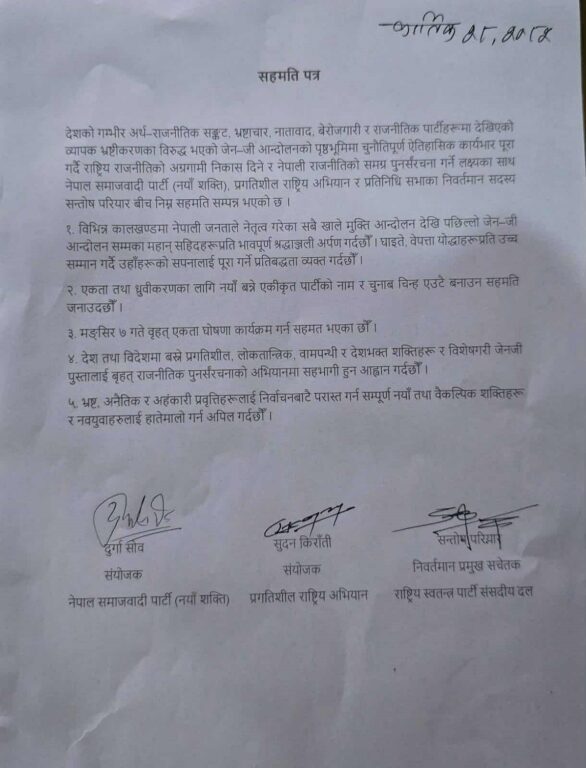 कार्तिक २८, २०८२
सहमति पत्र
देशको गम्भीर अर्थ–राजनीतिक सङ्कट, भ्रष्टाचार, नातावाद, बेरोजगारी र राजनीतिक पार्टीहरूमा देखिएको
व्यापक भ्रष्टीकरणका विरुद्ध भएको जेन–जी आन्दोलनको पृष्ठभूमिमा चुनौतिपूर्ण ऐतिहासिक कार्यभार पूरा
गर्दै राष्ट्रिय राजनीतिको अग्रगामी निकास दिने र नेपाली राजनीतिको समग्र पुनर्संरचना गर्ने लक्ष्यका साथ
नेपाल समाजवादी पार्टी (नयाँ शक्ति), प्रगतिशील राष्ट्रिय अभियान र प्रतिनिधि सभाका निवर्तमान सदस्य
सन्तोष परियार बीच निम्न सहमति सम्पन्न भएको छ ।
१. विभिन्न कालखण्डमा नेपाली जनताले नेतृत्व गरेका सबै खाले मुक्ति आन्दोलन देखि पछिल्लो जेन–जी
आन्दोलन सम्मका महान् सहिदहरूप्रति भावपूर्ण श्रद्धाञ्जली अर्पण गर्दछौँ । घाइते, वेपत्ता योद्धाहरूप्रति उच्च
सम्मान गर्दै उहाँहरूको सपनालाई पूरा गर्ने प्रतिबद्धता व्यक्त गर्दछौँ ।
२. एकता तथा ध्रुवीकरणका लागि नयाँ बन्ने एकीकृत पार्टीको नाम र चुनाब चिन्ह एउटै बनाउन सहमति
जनाउदछौँ ।
३. मङ्सिर ७ गते वृहत् एकता घोषणा कार्यक्रम गर्न सहमत भएका छौँ ।
४. देश तथा विदेशमा बस्ने प्रगतिशील, लोकतान्त्रिक, वामपन्थी र देशभक्त शक्तिहरू र विशेषगरी जेनजी
पुस्तालाई बृहत् राजनीतिक पुनर्संरचनाको अभियानमा सहभागी हुन आह्वान गर्दछौँ ।
५. भ्रष्ट, अनैतिक र अहंकारी प्रवृत्तिहरूलाई निर्वाचनबाटै परास्त गर्न सम्पूर्ण नयाँ तथा वैकल्पिक शक्तिहरू
र नवयुवाहरुलाई हातेमालो गर्न अपिल गर्दछौँ ।
दुर्गा सोब सुदन किराँती सन्तोष परियार
संयोजक संयोजक निवर्तमान प्रमुख सचेतक
नेपाल समाजवादी पार्टी (नयाँ शक्ति) प्रगतिशील राष्ट्रिय अभियान राष्ट्रिय स्वतन्त्र पार्टी संसदीय दल